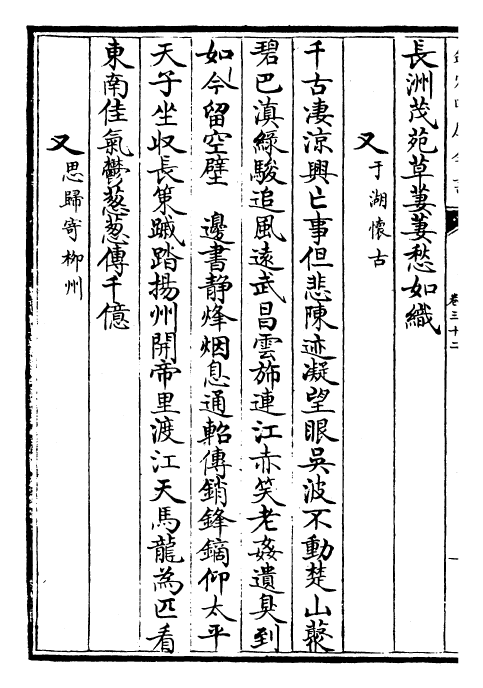 卷三十二
長洲茂苑草萋萋愁如織
又于湖懷古
千古淒涼興亡事但悲陳迹凝望眼吳波不動楚山藂
碧巴滇綠駿追風遠武昌雲斾連江赤笑老姦遺臭到
如今留空壁 邊書靜烽烟息通軺傳銷鋒鏑仰太平
天子坐収長策蹴踏揚州開帝里渡江天馬龍為匹看
東南佳氣鬱葱葱傳千億
又思歸寄柳州